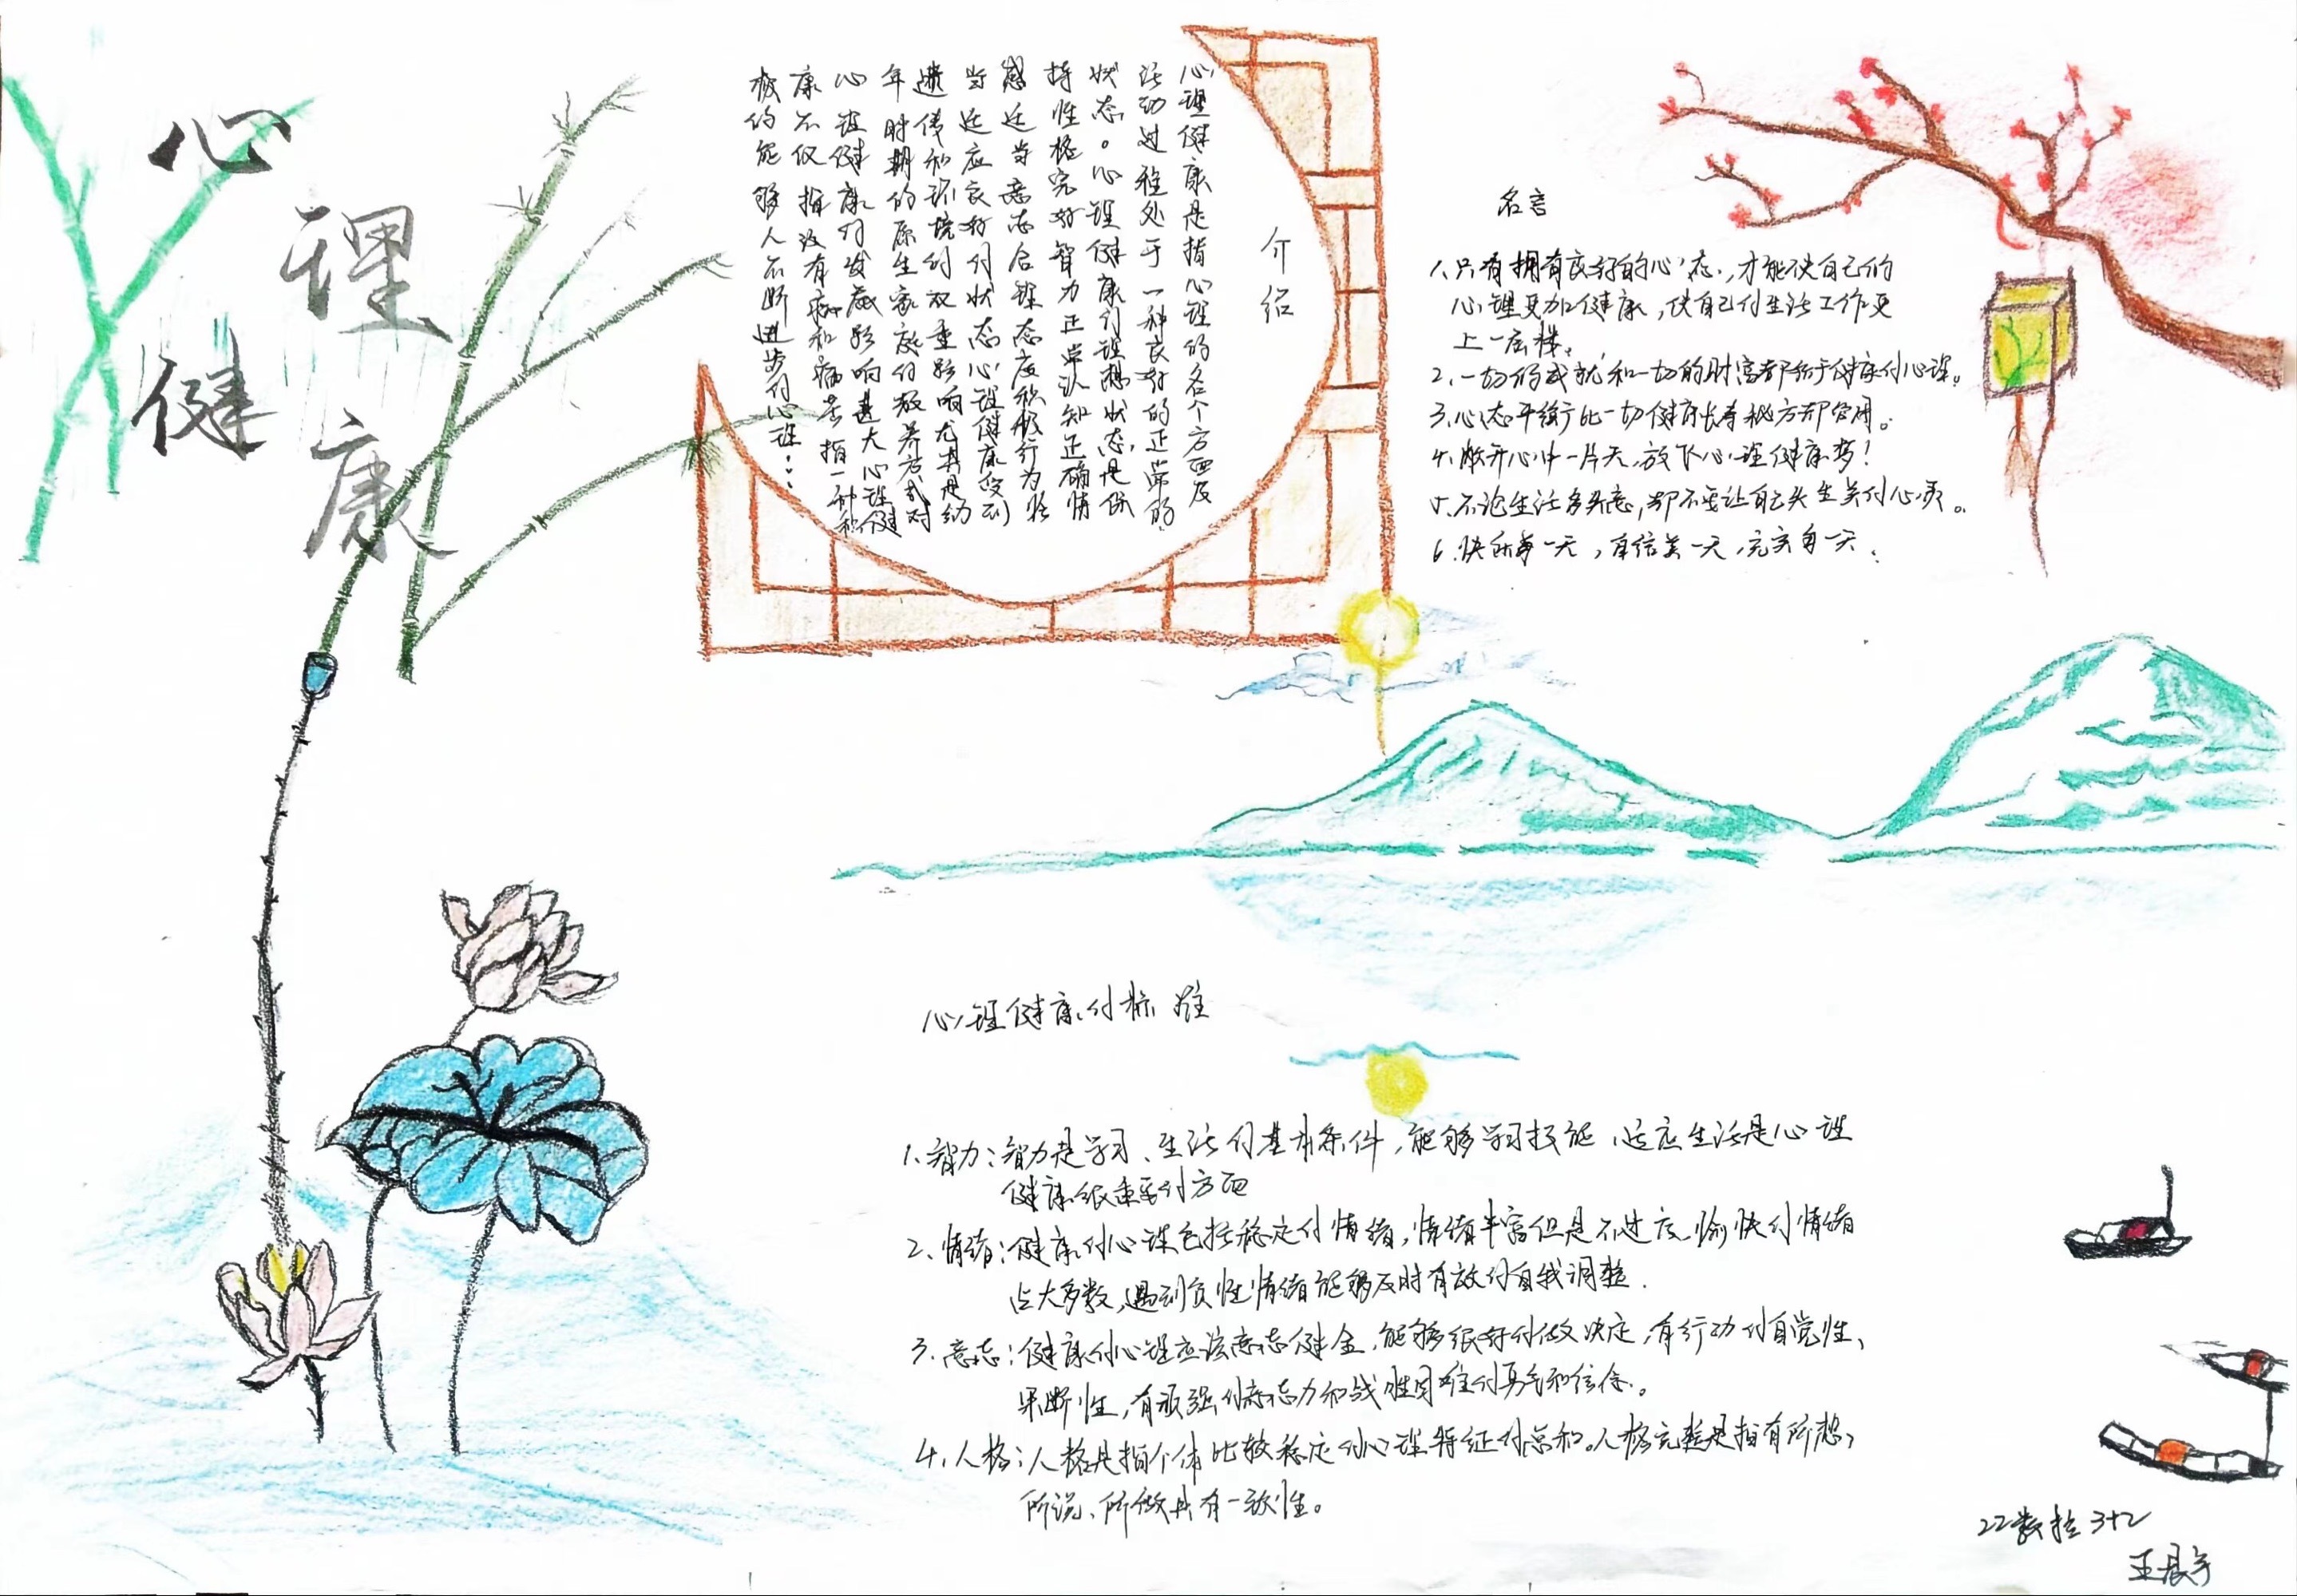 心理健康
介绍
心理健康是指心理的各个方面及
活动过程处于一种良好的正常的
状态。心理健康的理想状态是保
持性格完好智力正常认知正确情
感适当意志合理态度积极行为恰
当适应良好的状态心理健康受到
遗传和环境的双重影响尤其是幼
年时期的原生家庭的教养方式对
心理健康的发展影响甚大心理健
康不仅指没有病和病苦指一种积
极的能够人不断进步的心理...
名言
1.只有拥有良好的心态,才能使自己的
心理更加健康,使自己的生活工作更
上一层楼。
2.一切的成就和一切的财富都始于健康的心理。
3.心态平衡比一切健康长寿秘方都管用。
4.敞开心中一片天,放飞心理健康梦!
5.不论生活多失意,都不要让自己失生美的心灵。
6.快乐每一天,自信美一天,充实每一天.
心理健康的标准
1.智力:智力是学习、生活的基本条件,能够学习技能、适应生活是心理
健康很重要的方面
2、情绪:健康的心理包括稳定的情绪,情绪丰富但是不过度.愉快的情绪
占大多数,遇到负性情绪能够及时有效的自我调整.
3.意志:健康的心理应该意志健全,能够很好的做决定,有行动的自觉性、
果断性,有顽强的意志力和战胜困难的勇气和信念。
4.人格:人格是指个体比较稳定的心理特征的总和。人格完整是指有所想、
所说、所做具有一致性。
22数控3+2
王晨宇